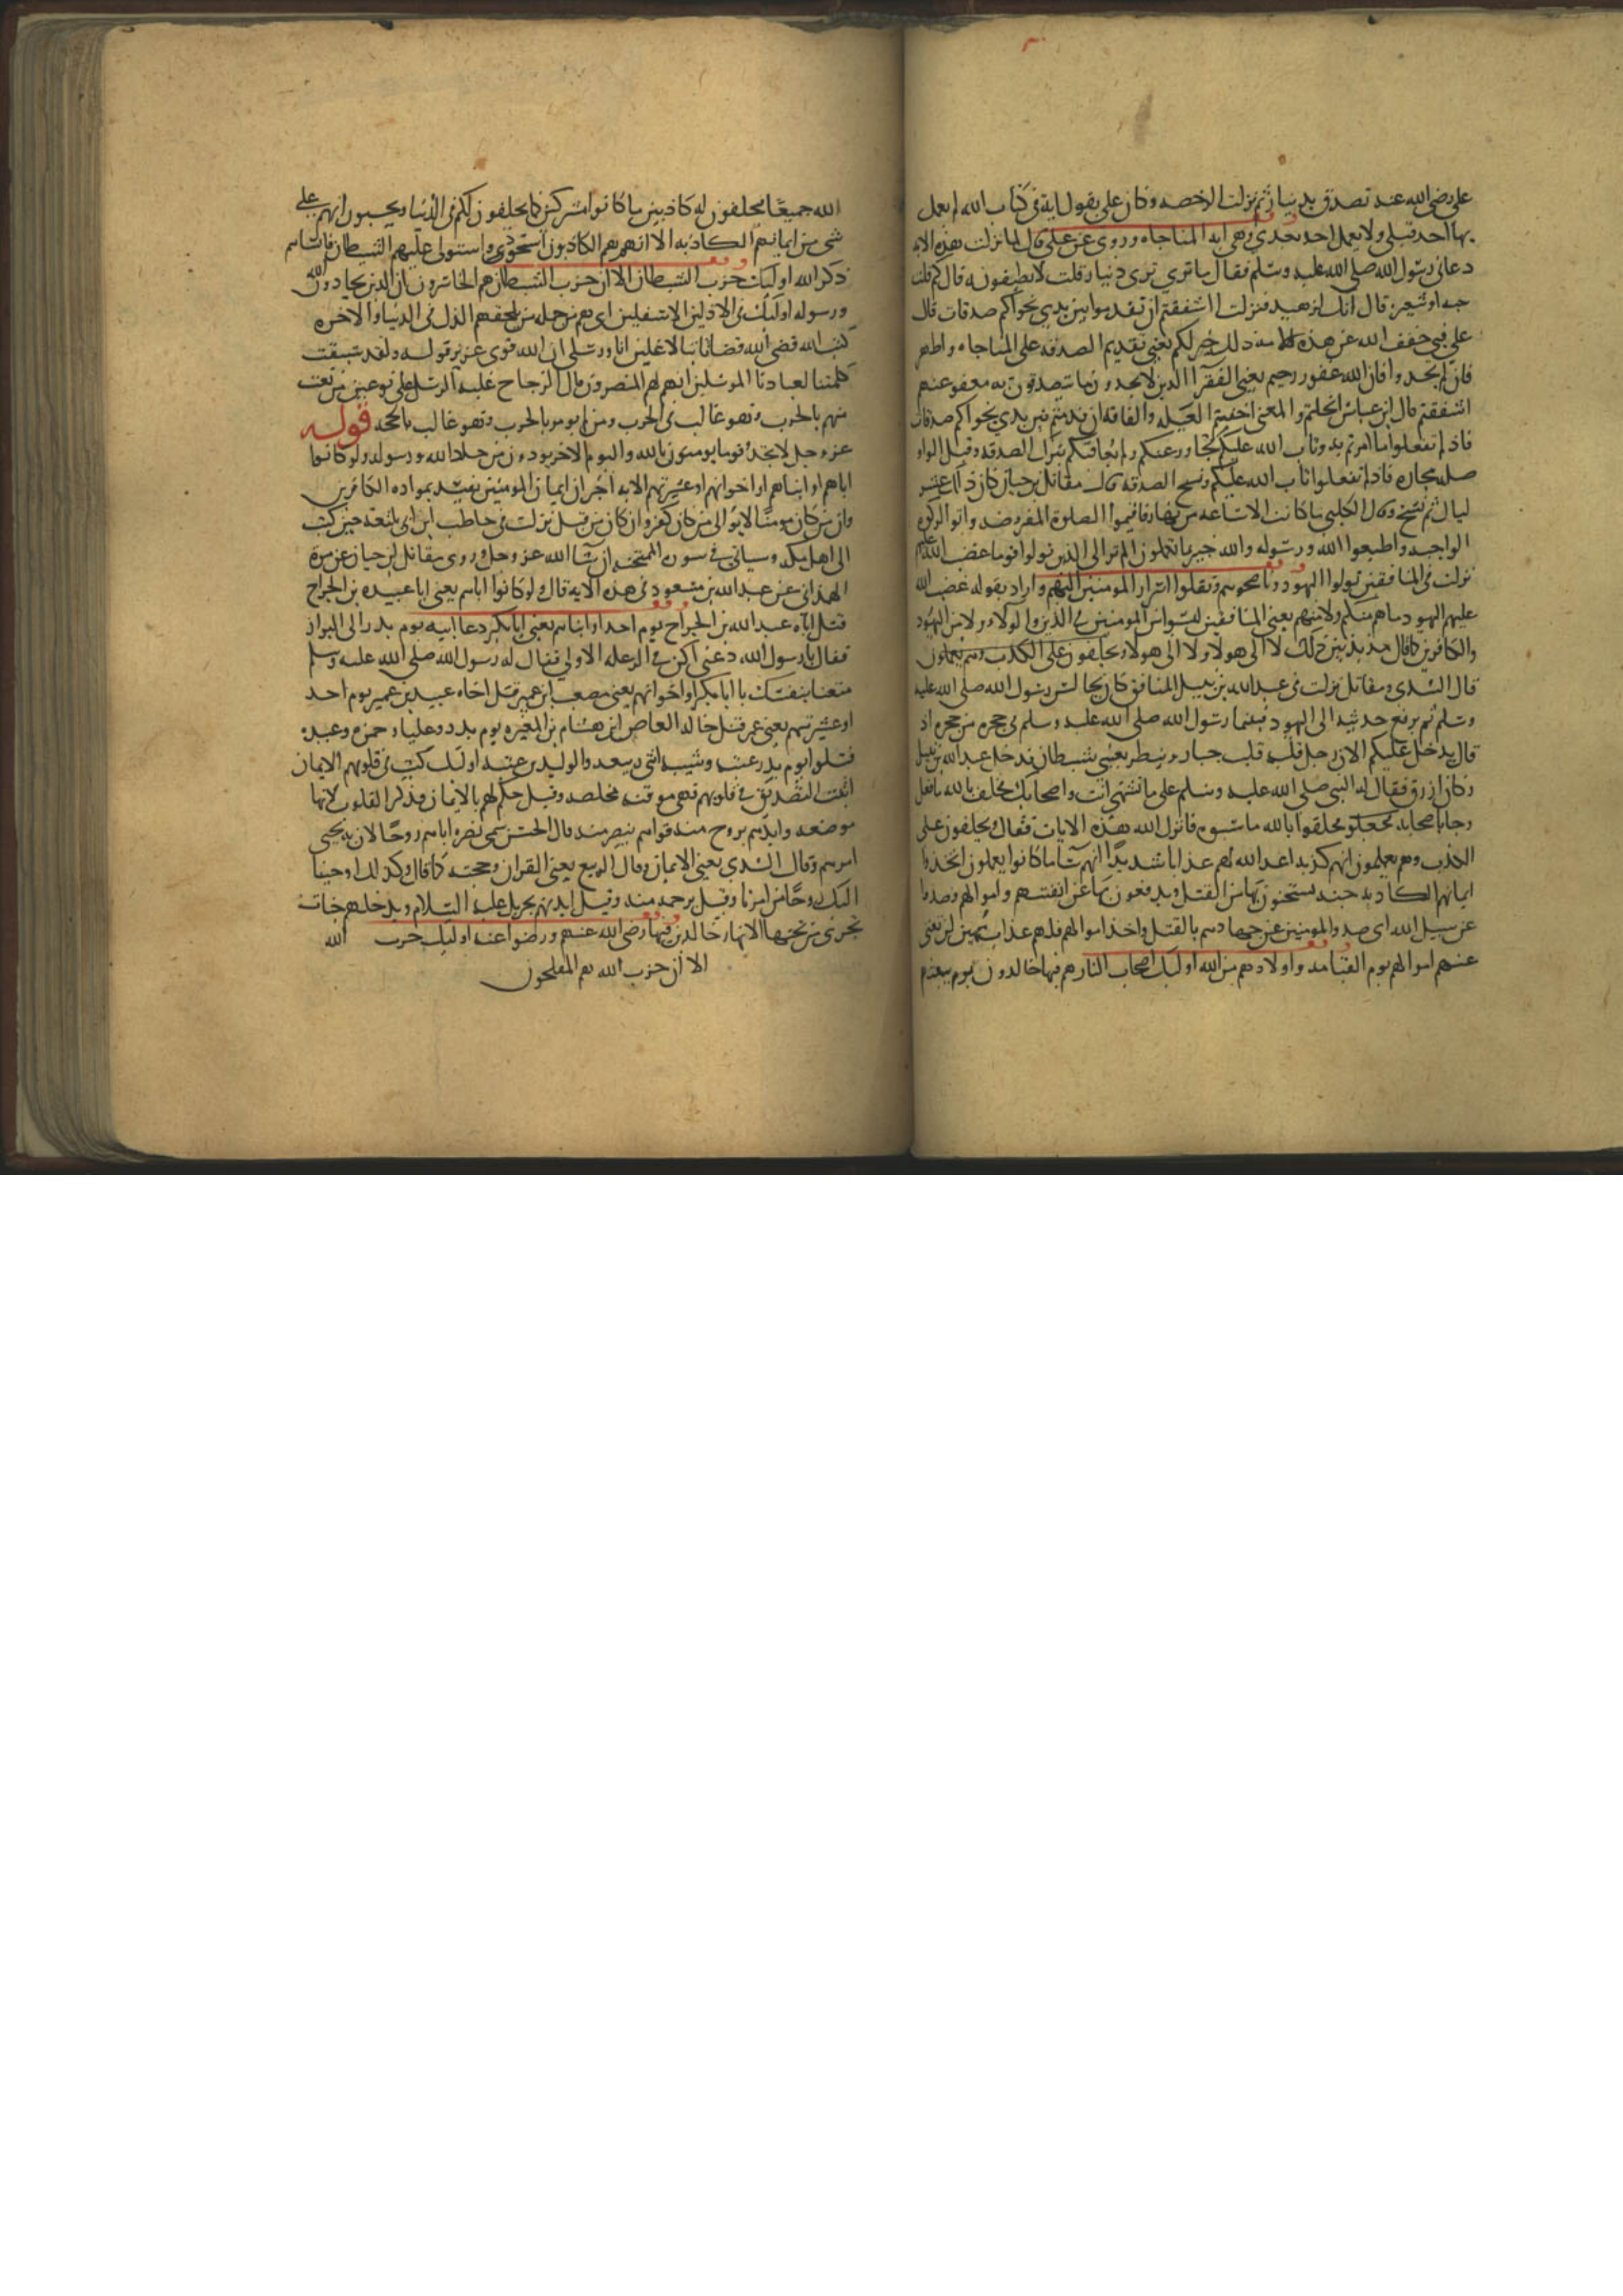 على رضى الله عنه تصدق بدينار ثم نزلت الرخصه وكان على يقول اية فى كتاب الله لم يعمل
بها احد قبلى ولا يعمل احد بعدى وهى اية المناجاه وروى عن على قال لما نزلت هذه الايه
دعانى رسول الله صلى الله عليه وسلم فقال ما ترى ترى دينار قلت لا يطيقونه قال كم قلت
حبه او شعيره قال انك لزهيد فنزلت ااشفقتم ان تقدموا بين يدى نجواكم صدقات قال
على فبى خفف الله عن هذه الامه ذلك خير لكم يعنى تقديم الصدقه على المناجاه واطهر
فان لم تجدوا فان الله غفور رحيم يعنى الفقرآ الذين لا يجدون ما يتصدقون به معفو عنهم
ااشفقتم قال ابن عباس ابخلتم والمعنى اخفيتم العيله والفاقه ان قدمتم بين يدى نجواكم صدقات
فاذ لم تفعلوا ما امرتم به وتاب الله عليكم تجاوز عنكم ولم يعاقبكم بترك الصدقه وقيل الواو
صله مجازه فاذ لم تفعلوا تاب الله عليكم ونسخ الصدقه قال مقاتل بن حيان كان ذلك عشر
ليال ثم نسخ وقال الكلبى ما كانت الا ساعه من نهار فاقيموا الصلوة المفروضه واتوا الزكوه
الواجبه واطيعوا الله ورسوله والله خبير بما تعملون الم تر الى الذين تولوا قوما غضب الله عليهم
نزلت فى المنافقين تولوا اليهود وناصحوهم ونقلوا اسرار المومنين اليهم واراد بقوله غضب الله
عليهم اليهود ما هم منكم ولا منهم يعنى المنافقين ليسوا من المومنين فى الدين والولاء ولا من اليهود
والكافرين كما قال مذبذبين بين ذلك لا الى هولاء ولا الى هولاء ويحلفون على الكذب وهم يعلمون
قال السدى ومقاتل نزلت فى عبد الله بن نبيل المنافق كان يجالس رسول الله صلى الله عليه
وسلم ثم يرفع حديثه الى اليهود فبينما رسول الله صلى الله عليه وسلم فى حجره من حجره اذ
قال يدخل عليكم الان رجل قلبه قلب جبار وينظر بعينى شيطان فدخل عبد الله بن نبيل
وكان ازرق فقال له النبى صلى الله عليه وسلم على ما تشتمنى انت واصحابك فحلف بالله ما فعل
وجا باصحابه فحلفوا بالله ما سبوه فانزل الله هذه الايات فقال ويحلفون على
الكذب وهم يعلمون انهم كذبه اعد الله لهم عذابا شديدًا انهم سآ ما كانوا يعملون اتخذوا
ايمانهم الكاذبه جنه يستجنون بها من القتل ويدفعون بها عن انفسهم واموالهم وصدوا
عن سبيل الله اى صدوا المومنين عن جهادهم بالقتل واخذ اموالهم فلهم عذاب مهين لن تغنى
عنهم اموالهم يوم القيامه واولادهم من الله اوليك اصحاب النار هم فيها خالدون يوم يبعثهم
الله جميعًا فيحلفون له كاذبين ما كانوا مشركين كما يحلفون لكم فى الدنيا ويحسبون انهم على
شى من ايمانهم الكاذبه الا انهم هم الكاذبون استحوذ واستولى عليهم الشيطان فانساهم
ذكر الله اوليك حزب الشيطان الا ان حزب الشيطان هم الخاسرون ان الذين يحادون الله
ورسوله اوليك فى الاذلين الاسفلين اى هم من جمله من يلحقهم الذل فى الدنيا والاخره
كتب الله قضى الله قضا ثابتا لاغلبن انا ورسلى ان الله قوى عزيز قوله ولقد سبقت
كلمتنا لعبادنا المرسلين انهم لهم المنصورون قال الزجاج غلبه الرسل على نوعين من بعث
منهم بالحرب وهو غالب فى الحرب ومن لم يومر بالحرب وهو غالب بالحجه قوله
عز وجل لا تجد قوما يومنون بالله واليوم الاخر يوادون من حاد الله ورسوله ولو كانوا
اباهم او ابناهم او اخوانهم او عشيرتهم الايه اخبر ان ايمان المومنين يفسد بمواده الكافرين
وان من كان مومنًا لا يوالى من كان كفر وان كان من قبل نزلت فى حاطب ابن ابى بلتعه حين كتب
الى اهل مكه وسياتى فى سورة الممتحنه ان شآ الله عز وجل وروى مقاتل بن حيان عن مره
الهمذانى عن عبد الله بن مسعود فى هذه الايه قال ولو كانوا اباهم يعنى ابا عبيده بن الجراح
قتل اباه عبد الله بن الجراح يوم احد او ابناهم يعنى ابا بكر دعا ابنه يوم بدر الى البراز
فقال يا رسول الله دعنى اكن فى الرعله الاولى فقال له رسول الله صلى الله عليه وسلم
متعنا بنفسك يا ابا بكر او اخوانهم يعنى مصعب بن عمير قتل اخاه عبيد بن عمير يوم احد
او عشيرتهم يعنى عمر قتل خاله العاص ابن هشام بن المغيره يوم بدر وعليا وحمزه وعبيده
قتلوا يوم بدر عتبه وشيبه ابنى ربيعه والوليد بن عتبه اوليك كتب فى قلوبهم الايمان
اثبت التصديق فى قلوبهم فهى موقنه مخلصه وقيل حكم لهم بالايمان فذكر القلوب لانها
موضعه وايدهم بروح منه قواهم بنصر منه قال الحسن سمى نصره اياهم روحًا لان به يحيى
امرهم وقال السدى يعنى الايمان وقال الربيع يعنى القران وحجته كما قال وكذلك اوحينا
اليك روحًا من امرنا وقيل برحمه منه وقيل ايدهم بجبريل عليه السلام ويدخلهم جنات
تجرى من تحتها الانهار خالدين فيها رضى الله عنهم ورضوا عنه اوليك حزب الله
الا ان حزب الله هم المفلحون